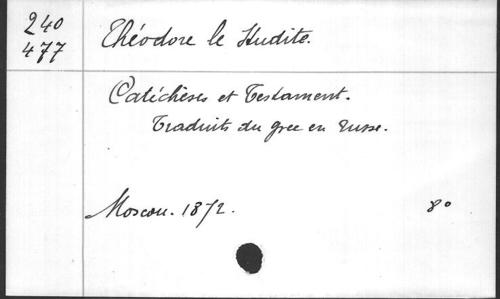 240
477
Théodore le Studite.
Catéchèses et Testament.
Traduits du grec en russe.
Moscou. 1872.
8°